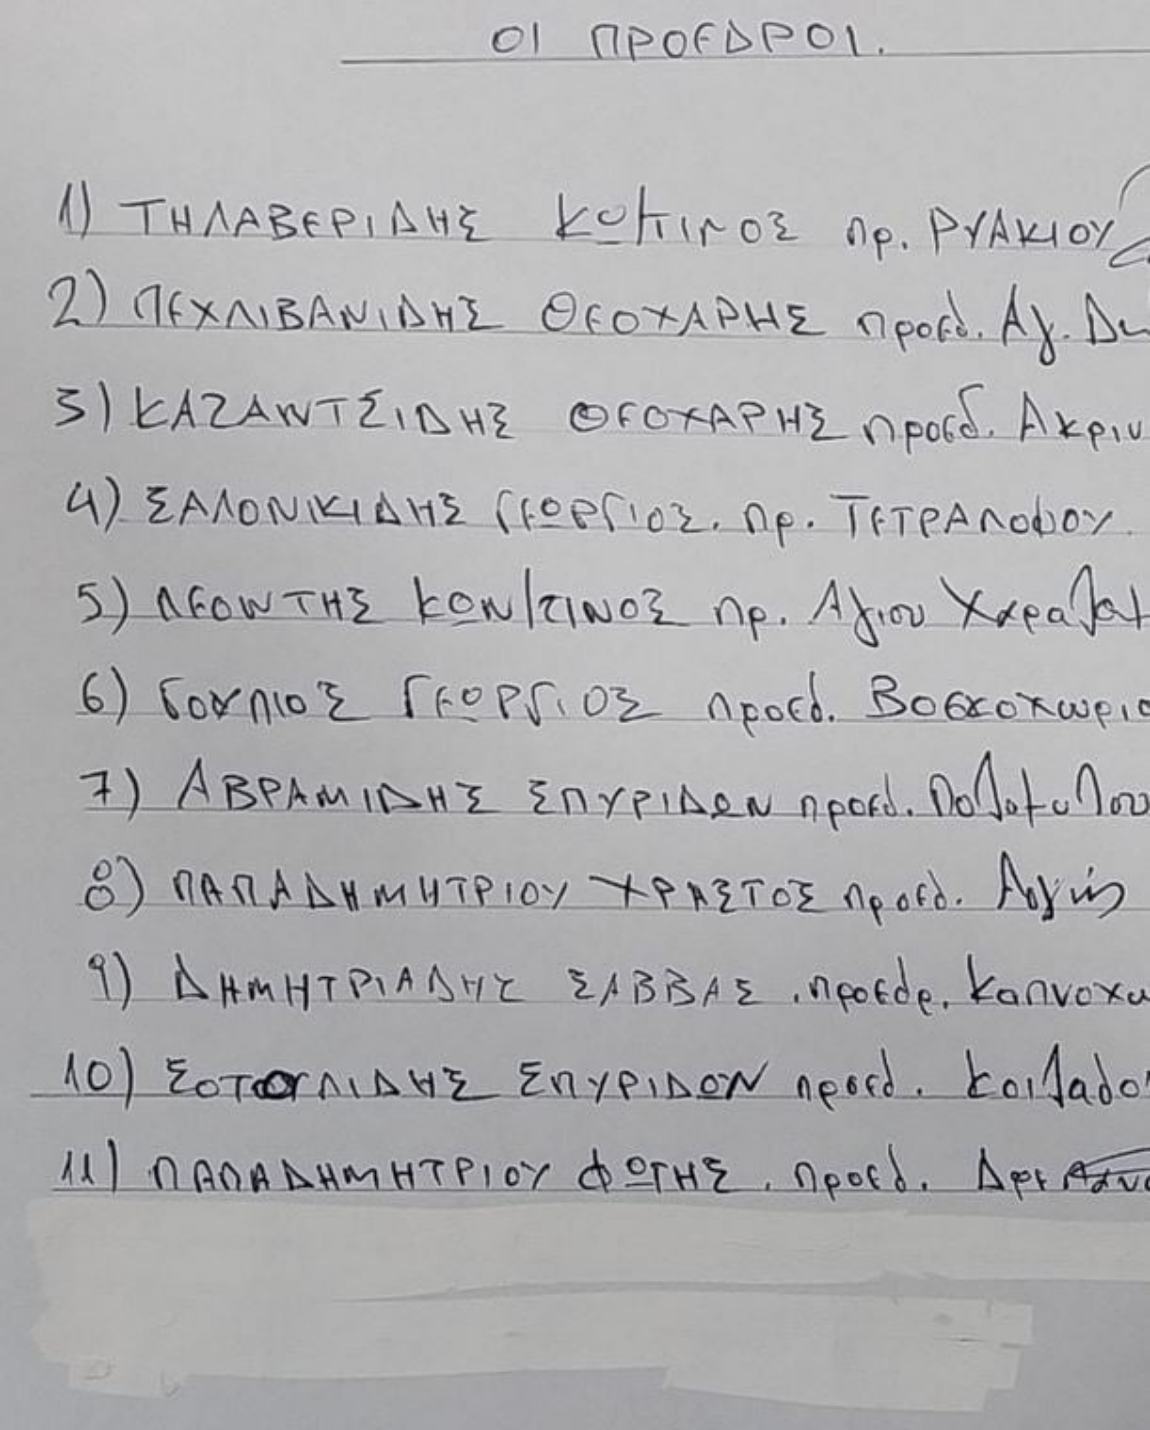 ΟΙ ΠΡΟΕΔΡΟΙ.
1) ΤΗΛΑΒΕΡΙΔΗΣ πρ. ΡΥΑΚΙΟΥ
2) ΠΕΧΛΙΒΑΝΙΔΗΣ ΘΕΟΧΑΡΗΣ προεδ. Αγ. Δη
3) ΚΑΖΑΝΤΣΙΔΗΣ ΘΕΟΧΑΡΗΣ προεδ. Ακριν
4) ΣΑΛΟΝΙΚΙΔΗΣ ΓΕΩΡΓΙΟΣ. πρ. ΤΕΤΡΑΛΟΦΟΥ.
5) ΛΕΟΝΤΗΣ ΚΩΝ/ΤΙΝΟΣ πρ. Αγιου Χαραλαμ
6) ΓΟΥΠΙΟΣ ΓΕΩΡΓΙΟΣ προεδ. Βοσκοχωριο
7) ΑΒΡΑΜΙΔΗΣ ΣΠΥΡΙΔΩΝ προεδ.
8) ΠΑΠΑΔΗΜΗΤΡΙΟΥ ΧΡΗΣΤΟΣ προεδ.
9) ΔΗΜΗΤΡΙΑΔΗΣ ΣΑΒΒΑΣ. προεδρ. Καπνοχω
10) ΣΠΥΡΙΔΩΝ προεδ. Κοιλαδο
11) ΠΑΠΑΔΗΜΗΤΡΙΟΥ ΦΩΤΗΣ. προεδ.